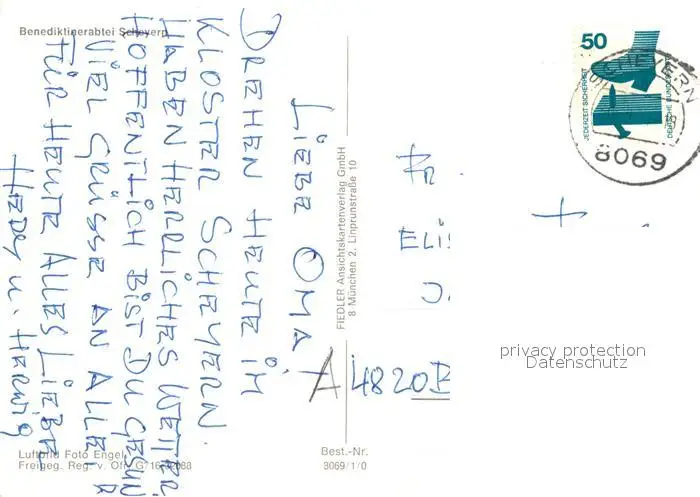 Benediktinerabtei Scheyern
LIEBE OMA
DREHEN HEUTE IM
KLOSTER SCHEYERN.
HABEN HERRLICHES WETTER.
HOFFENTLICH BIST DU GESUND
VIEL GRÜSSE AN ALLE,
FÜR HEUTE ALLES LIEBE
HEDY u. HERWIG
Luftbild Foto Engel
Freigeg. Reg. v. Ofr. G
FIEDLER Ansichtskartenverlag GmbH
8 München 2, Linprunstraße 10
Best.-Nr.
3069/1/0
50
JEDERZEIT SICHERHEIT
DEUTSCHE BUNDESPOST
SCHEYERN
8069
ELIS
A 4820 B
privacy protection
Datenschutz